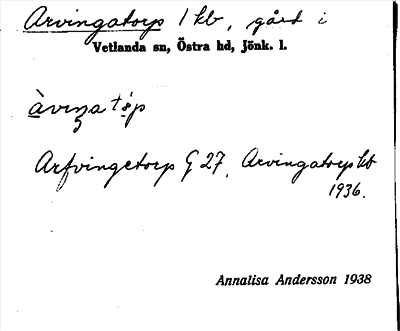 Arvingatorp 1 kb, gård i
Vetlanda sn, Östra hd, Jönk. l.
àviŋatårp
Arfvingetorp G 27, Arvingatorp kb
1936.
Annalisa Andersson 1938